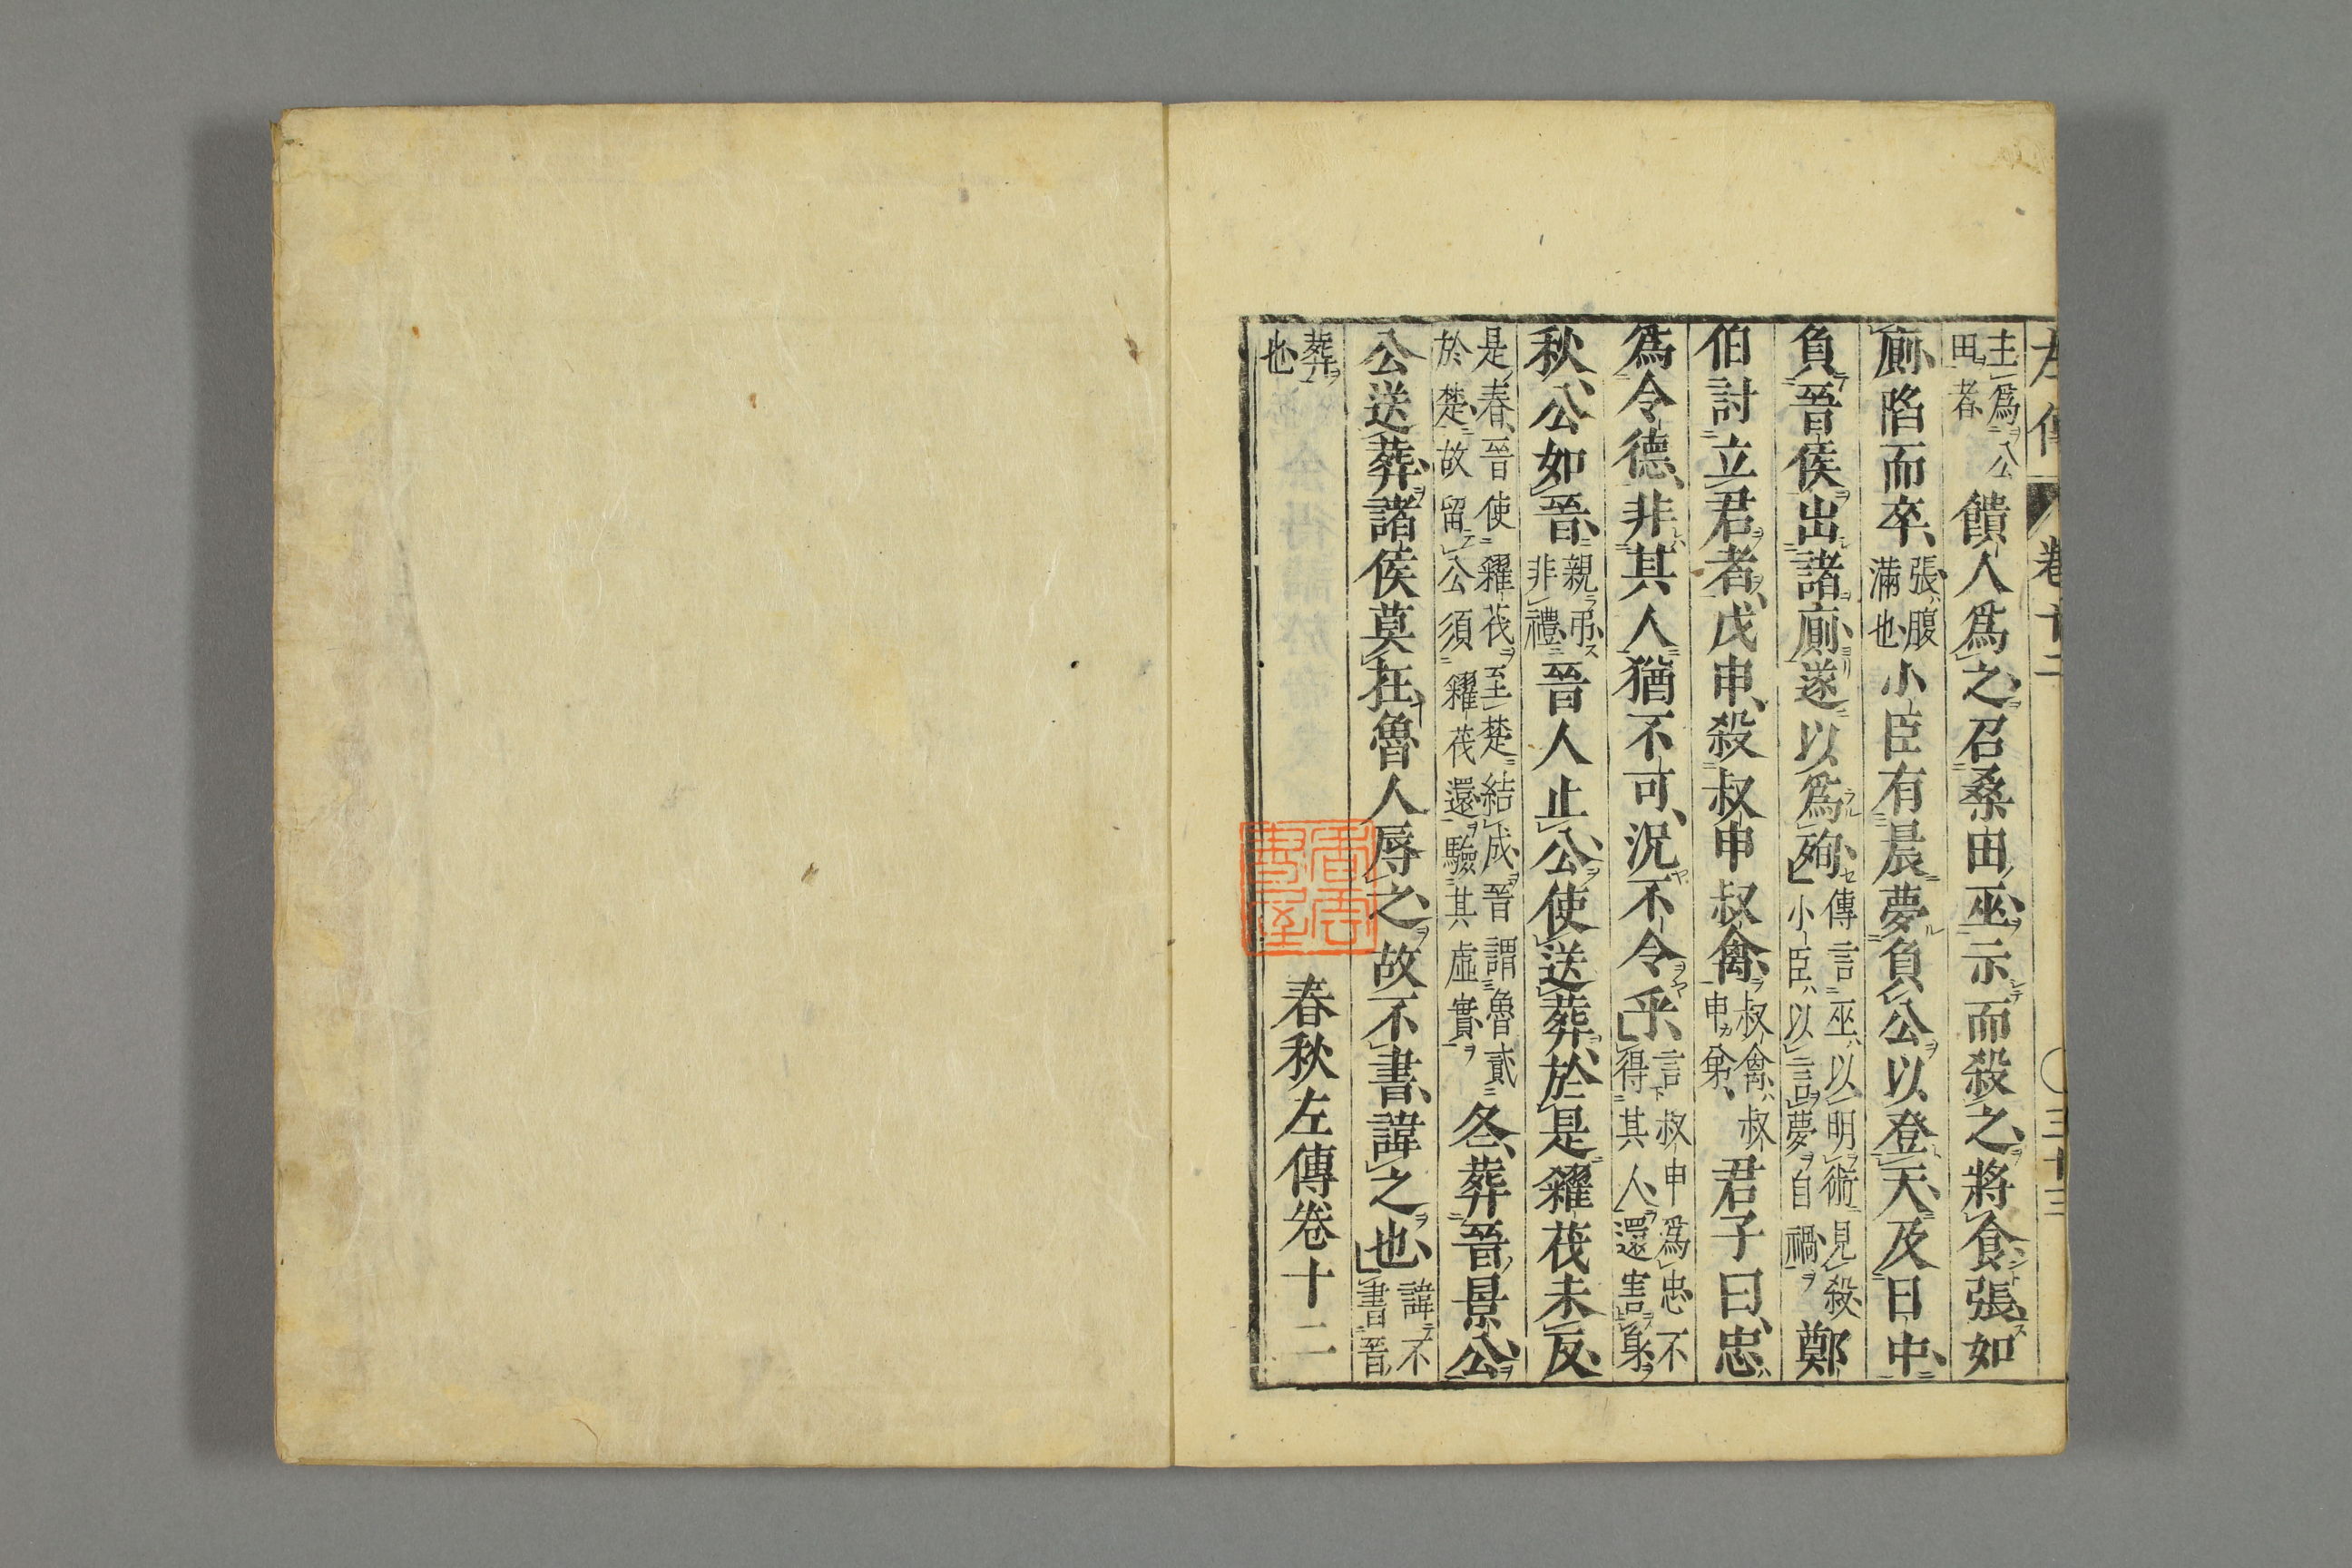 左傳 卷十二 〇三十三
主爲公田者饋人爲之召桑田巫示而殺之將食張如
廁陷而卒張腹滿也小臣有晨夢負公以登天及日中
負晉侯出諸廁遂以爲殉傳言巫以明術見殺小臣以言夢自禍鄭
伯討立君者戊申殺叔申叔禽叔禽叔申弟君子曰忠
爲令德非其人猶不可況不令乎言叔申爲忠不得其人還害身
秋公如晉親弔非禮晉人止公使送葬於是糴茷未反
是春晉使糴茷至楚結成晉謂魯貳於楚故留公須糴茷還驗其虛實冬葬晉景公
公送葬諸侯莫在魯人辱之故不書諱之也諱不書晉
葬也
春秋左傳卷十二